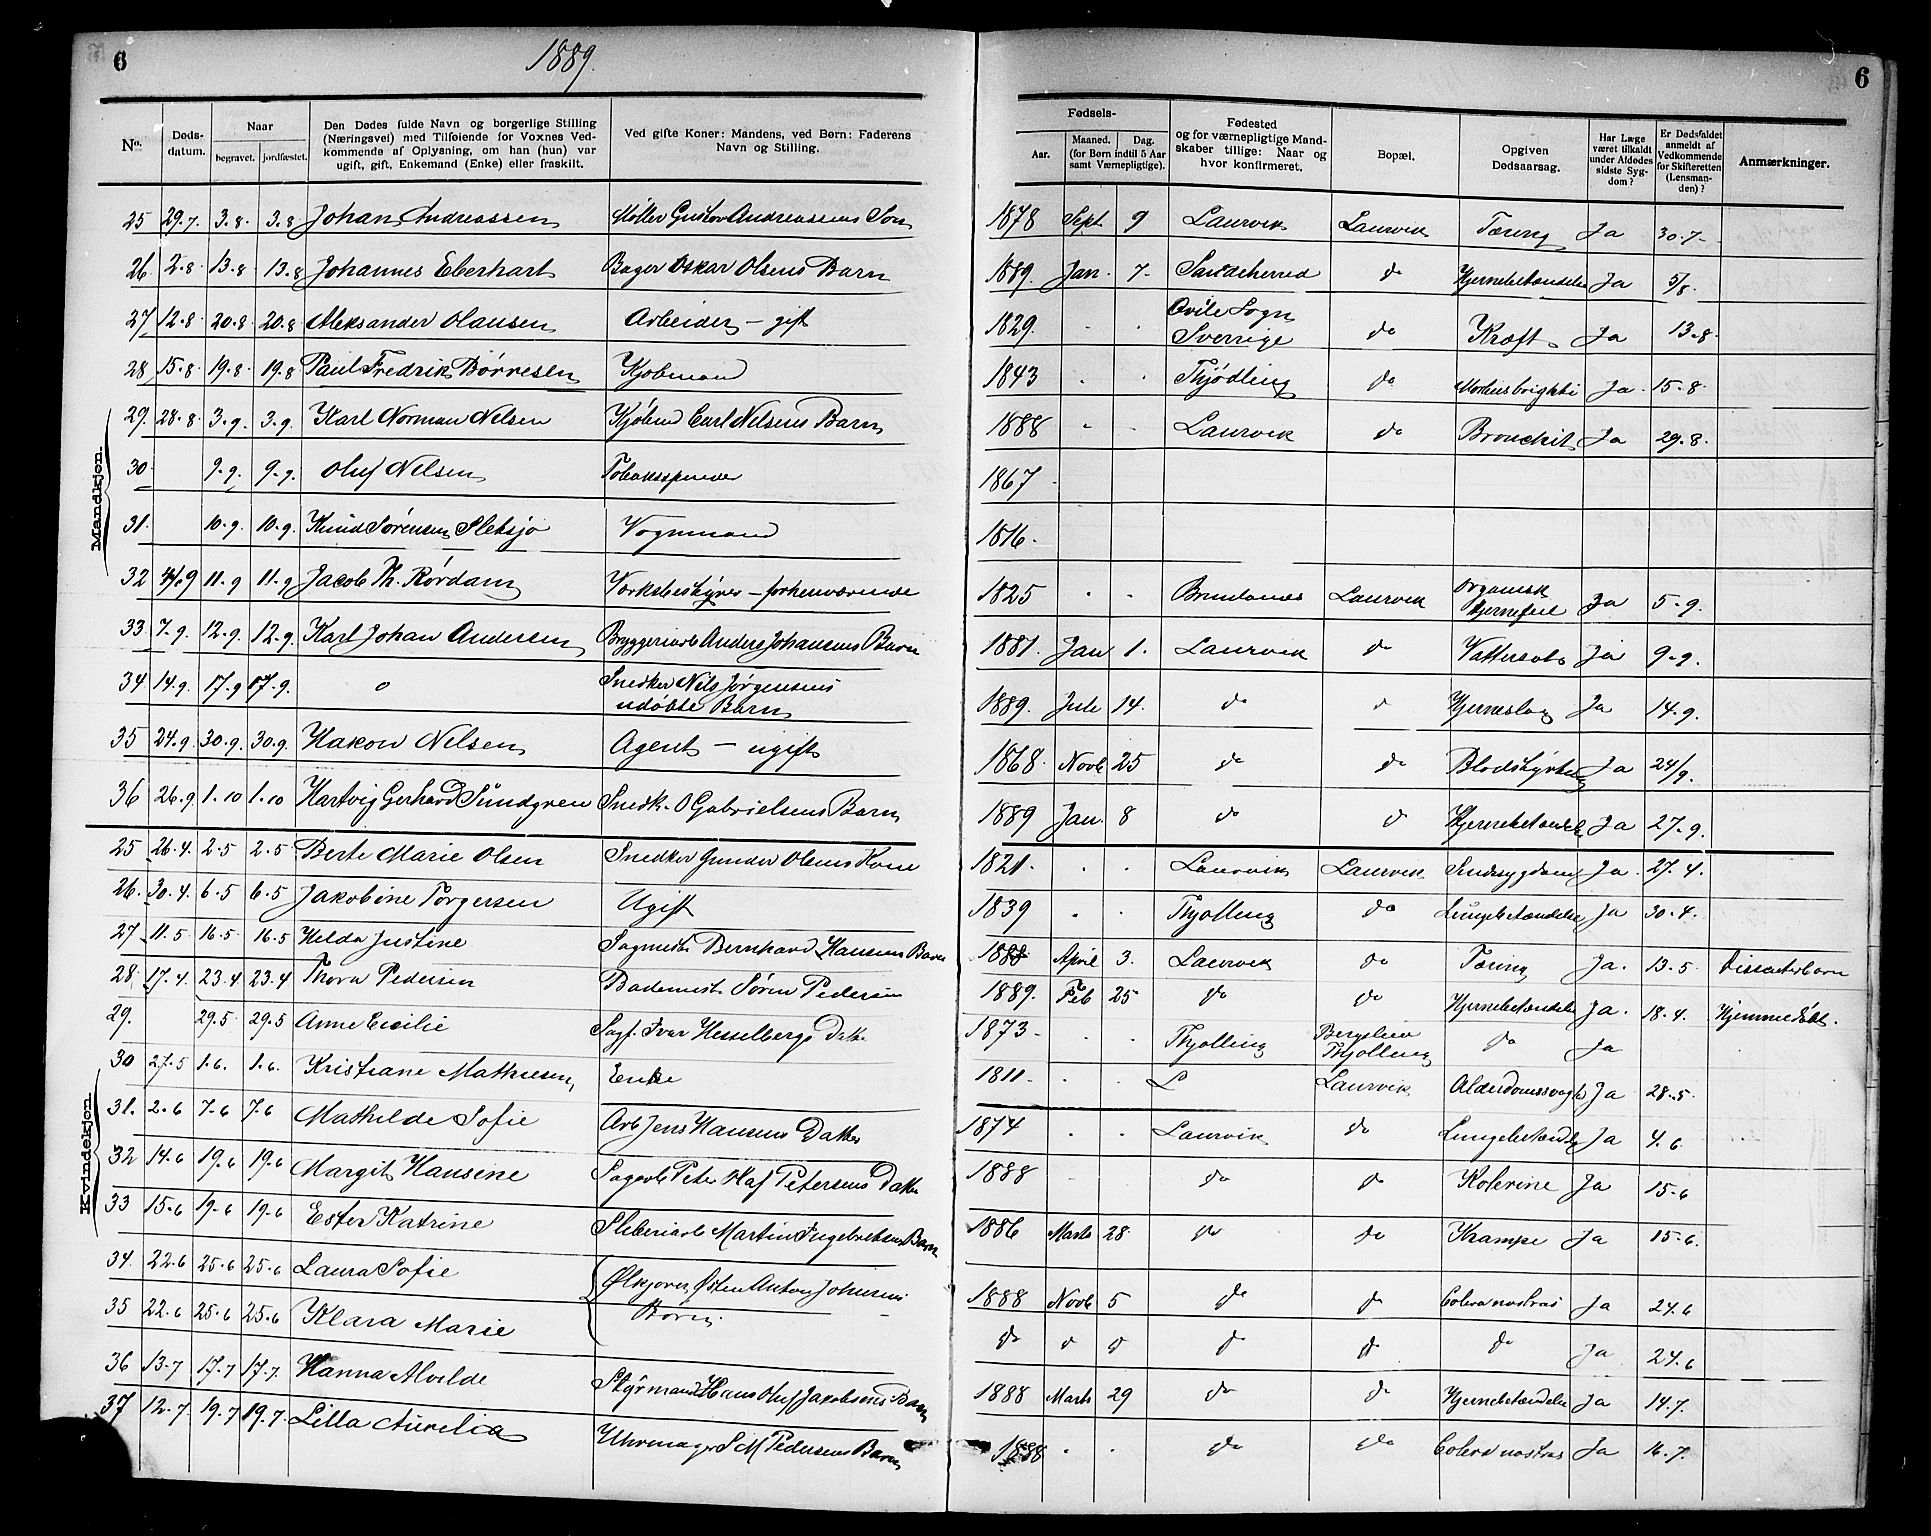 6
1889.
6
No.
Døds-
datum.
Naar
begravet.
jordfæstet.
Den Dødes fulde Navn og borgerlige Stilling
(Næringsvei) med Tilføiende for Voxnes Ved-
kommende af Oplysning, om han (hun) var
ugift, gift, Enkemand (Enke) eller fraskilt.
Ved gifte Koner: Mandens, ved Børn: Faderens
Navn og Stilling.
Fødsels-
Aar.
Maaned. Dag.
(for Børn indtil 5 Aar
samt Værnepligtige).
Fødested
og for værnepligtige Mand-
skaber tillige: Naar og
hvor konfirmeret.
Bopæl.
Opgiven
Dødsaarsag.
Har Læge
været tilkaldt
under Afdødes
sidste Syg-
dom?
Er Dødsfaldet
anmeldt af
Vedkommende
for Skifteretten
(Lensman-
den)?
Anmærkninger.
Mandkjøn.
25 29.7. 3.8. 3.8 Johan Andreassen Møller Gustav Andreasens Søn 1878 Sept 9 Laurvik Laurvik Tæring Ja 30.7.
26 2.8. 13.8 13.8 Johannes Eberhart Bager Oskar Olsens Barn 1889. Jan. 7. Sandeherred do Hjernebetændelse Ja 5/8.
27 12.8. 20.8. 20.8 Aleksander Olausen Arbeider - gift 1829. . . Qvile Sogn
Sverrige do Kræft Ja 13.8.
28 15.8. 19.8. 19.8 Paul Fredrik Børresen Kjøbmand 1843 . . Thjødling do Morbus brighti Ja 15.8.
29. 28.8. 3.9. 3.9. Karl Norman Nelsen Kjøbmd Carl Nelsens Barn 1888 . . Laurvik do Bronchit Ja 29.8.
30 9.9. 9.9. Oluf Nelsen Tobaksspinder 1867
31. 10.9. 10.9. Knud Sørensen Vognmand 1816.
32 11.9 11.9 Jacob Th. Rørdam Værksbestyrer - forhenværende 1825 . . Brunlanes Laurvik organisk
Hjertefeil Ja 5.9.
33. 7.9. 12.9. 12.9. Karl Johan Andersen Bryggeriarb Anders Johansens Barn 1881. Jan 1. Laurvik do Vattersot Ja 9.9.
34 14.9. 17.9 17.9. o Snedker Nils Jørgensens
udøbte Barn 1889. Jule 14. do do Hjerneslag Ja 14.9.
35 24.9. 30.9. 30.9. Hakon Nelsen Agent - ugift 1868. Novb 25 do do Blodstyrtning Ja 24/9.
36 26.9. 1.10 1.10 Hartvig Gerhard Sundgren Snedk. O Gabrielsens Barn 1889 Jan. 8 do do Hjernebetændelse Ja 27.9.
Kvindekjøn.
25 26.4. 2.5 2.5 Berte Marie Olsen Snedker Gunder Olsens Kone 1821. . . Laurvik Laurvik Sindssygdom Ja. 27.4.
26. 30.4. 6.5 6.5 Jakobine Torgersen Ugift 1839 . . Thjølling do Lungebetændelse Ja 30.4.
27 11.5 16.5. 16.5 Helda Justine Sagmstr Bernhard Hansens Barn 1888 April 3. Laurvik do Tæring Ja. 13.5. Dissenterbarn
28 17.4. 23.4 23.4 Thora Pedersen Bademest. Søren Pedersen 1889. Feb 25 do do Hjernebetændelse Ja. 18.4. Hjemmedøbt.
29. 29.5. 29.5 Anne Cecilie Sagf. Ivar Hesselbergs Datter 1873. . . Thjølling
Thjølling do Ja
30 27.5 1.6. 1.6. Kristiane Mathiesen, Enke 1811 . . L Laurvik Alderdomssvaghed Ja 28.5.
31. 2.6 7.6 7.6 Mathilde Sofie Arb Jens Hansens Datter 1874 . . Laurvik do Lungebetændelse Ja 4.6.
32 14.6 19.6 19.6 Margit Hansine Sagarb Peter Olaf Petersens Datter 1888 . . do do Kolerine Ja 15.6
33 15.6 19.6 19.6 Ester Katrine Sliberiarb Martin Ingebretsens Barn 1886 Marts 28 do do Krampe Ja 15.6.
34. 22.6 25.6 25.6 Laura Sofie Østen Anton Johnsens
Børn 1888 Novb 5 do do Colera nostras Ja 24.6
35 22.6 25.6 25.6 Klara Marie do do do do do do Ja 24.6
36 13.7 17.7 17.7. Hanna Alvilde Styrmand Hans Oluf Jakobsens Barn 1888 Marts 29 do do Hjernebetændelse Ja 14.7.
37 12.7. 19.7 19.7. Lilla Aurelia Uhrmager S M Pedersens Barn 1888 . . do do Colera nostras Ja 16.7.